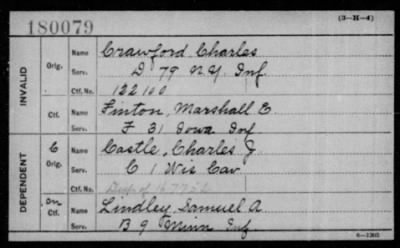 180079
(3-H-4)
INVALID
Orig.
Name Crawford, Charles
Serv. D 79 N.Y. Inf.
Ctf. No. 122100
Ctf.
Name Finton, Marshall E.
Serv. F 31 Iowa Inf
DEPENDENT
C
Orig.
Name Castle, Charles J.
Serv. C 1 Wis Cav
Ctf. No. Dup of
on
Ctf.
Name Lindley, Samuel A
Serv. B 9 Minn Inf